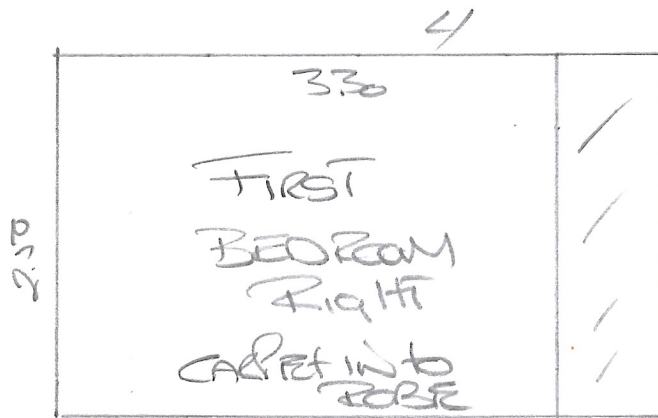 4
3.30
FIRST
BEDROOM
RigHT
CARPET INto
ROBE